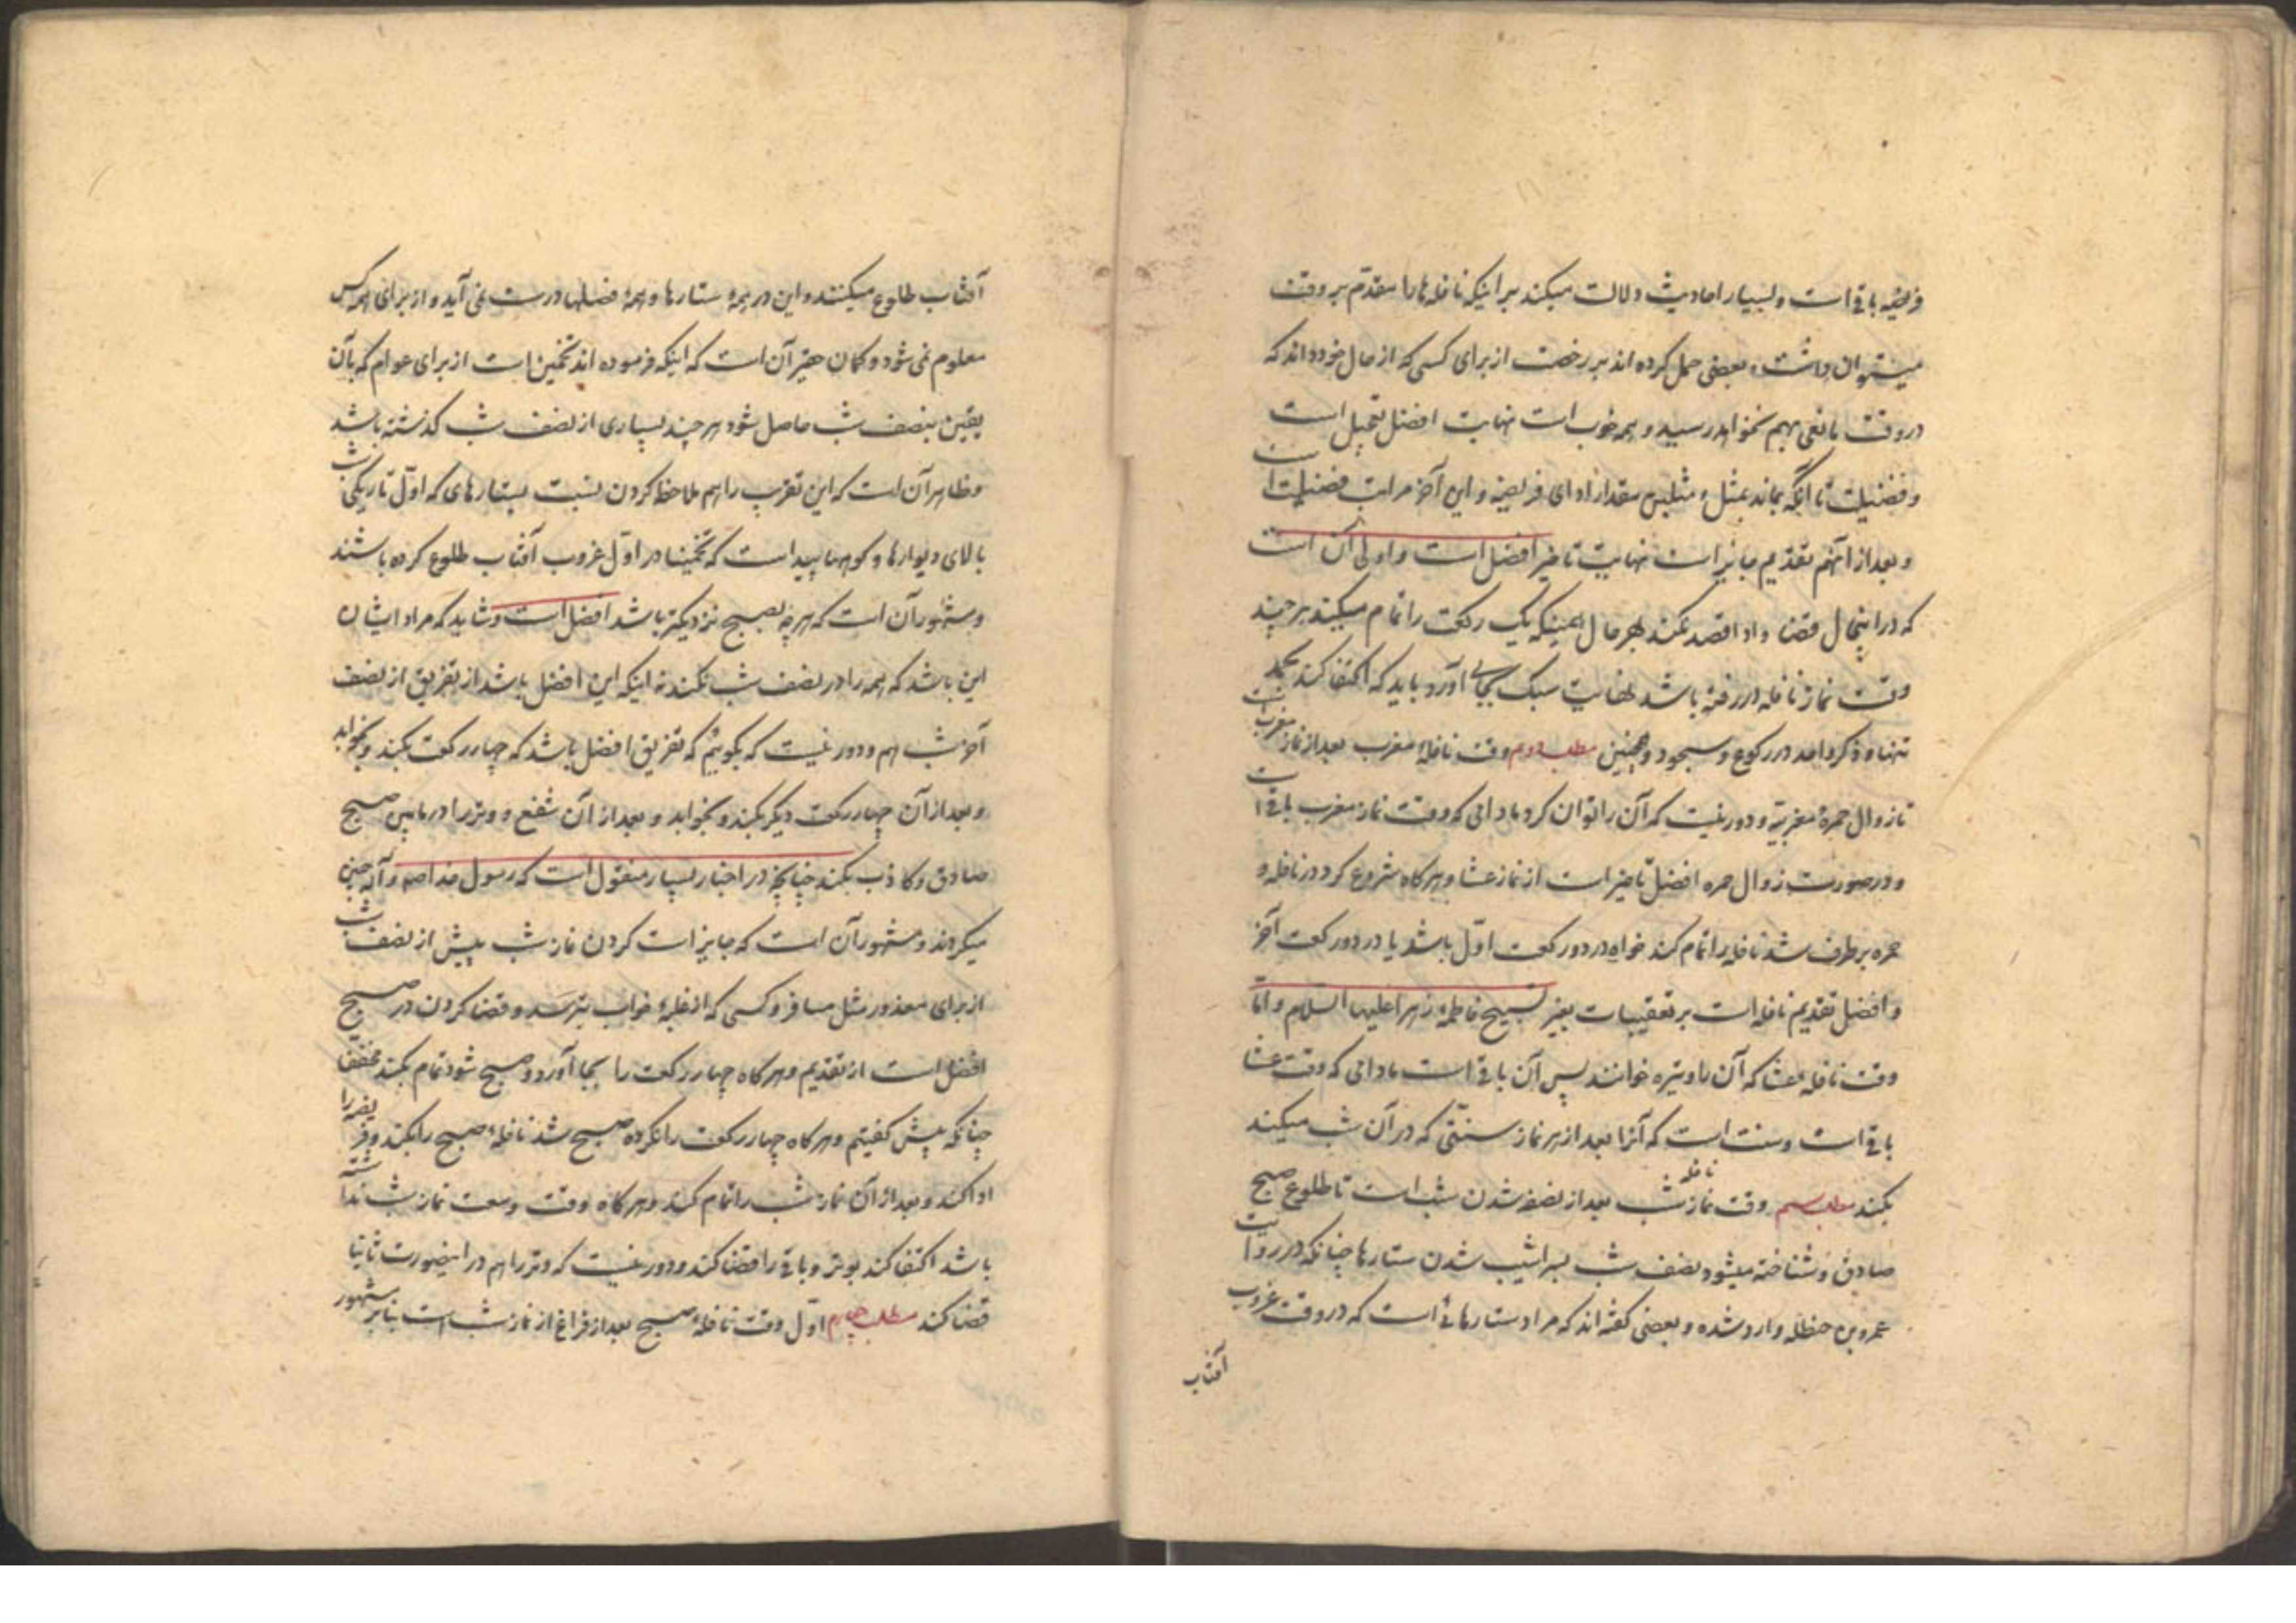 فریضه باقی است و بسیار احادیث دلالت میکند بر اینکه نافله‌ها را مقدّم بر وقت
میتوان داشت و بعضی حمل کرده اند بر رخصت از برای کسی که از حال خود داند که
در وقت مانعی بهم نخواهد رسید و همه خوب است نهایت افضل تعجیل است
و فضیلت تا آنکه بماند بمثل و مثلین مقدار ادای فریضه و این آخر مراتب فضیلت است
و بعد از آنهم تقدیم جایز است نهایت تاخیر افضل است و اولی آن است
که در اینحال قضا و ادا قصد نکند بهر حال همینکه یک رکعت را تمام میکند هر چند
وقت نماز نافله در رفته باشد نهایت سبک بجای آورد باید که اکتفا کند بحمد
تنها و ذکر واحد در رکوع و سجود و همچنین مطلب دوم وقت نافلهٔ مغرب بعد از نماز مغرب است
تا زوال حمرهٔ مغربیّه و دور نیست که آن را توان کرد مادامی که وقت نماز مغرب باقی است
و در صورت زوال حمره افضل تاخیر است از نماز عشا و هرکاه شروع کرد در نافله و
حمره برطرف شد نافله را تمام کند خواه در دو رکعت اوّل باشد یا در دو رکعت آخر
و افضل تقدیم نافله است بر تعقیبات بغیر تسبیح فاطمهٔ زهرا علیها السلام و امّا
وقت نافلهٔ عشا که آن را وتیره خوانند پس آن باقی است مادامی که وقت عشا
باقی است و سنت است که آنرا بعد از هر نماز سنتی که در آن شب میکند
بکند مطلب سیم وقت نافله نماز شب بعد از نصف شدن شب است تا طلوع صبح
صادق و شناخته میشود نصف شب بسراشیب شدن ستارها چنانکه در روایت
عمرو بن حنظله وارد شده و بعضی گفته اند که مراد ستارهائی است که در وقت غروب
آفتاب
آفتاب طلوع میکنند و این در همهٔ ستارها و همهٔ فصلها درست نمی آید و از برای همه کس
معلوم نمی شود و کمان حقیر آن است که اینکه فرموده اند تخمین است از برای عوام که بآن
یقین بنصف شب حاصل شود هر چند بسیاری از نصف شب کذشته باشد
و ظاهر آن است که این تقریب را هم ملاحظه کردن نسبت بستارهای که اوّل تاریکی شب
بالای دیوارها و کوهها پیداست که تخمینا در اوّل غروب آفتاب طلوع کرده باشند
و مشهور آن است که هر چه بصبح نزدیکتر باشد افضل است و شاید که مراد ایشان
این باشد که همه را در نصف شب نکند نه اینکه این افضل باشد از تفریق از نصف
آخر شب هم و دور نیست که بگوییم که تفریق افضل باشد که چهار رکعت بکند و بخوابد
و بعد از آن چهار رکعت دیگر بکند و بخوابد و بعد از آن شفع و وتر را در مابین صبح
صادق و کاذب بکند چنانچه در اخبار بسیار منقول است که رسول خدا صم و آله چنین
میکردند و مشهور آن است که جایز است کردن نماز شب پیش از نصف شب
از برای معذور مثل مسافر و کسی که از غلبهٔ خواب بترسد و قضا کردن در صبح
افضل است از تقدیم و هرکاه چهار رکعت را بجا آورد و صبح شود تمام بکند مخففا
چنانکه پیش کفتیم و هرکاه چهار رکعت را نکرده صبح شد نافلهٔ صبح را بکند و فریضه را
ادا کند و بعد از آن نماز شب را تمام کند و هرکاه وقت وسعت نماز شب نداشته
باشد اکتفا کند بوتر و باقی را قضا کند و دور نیست که وتر را هم در اینصورت ثانیا
قضا کند مطلب چهارم اوّل وقت نافلهٔ صبح بعد از فراغ از نماز شب است بنابر مشهور